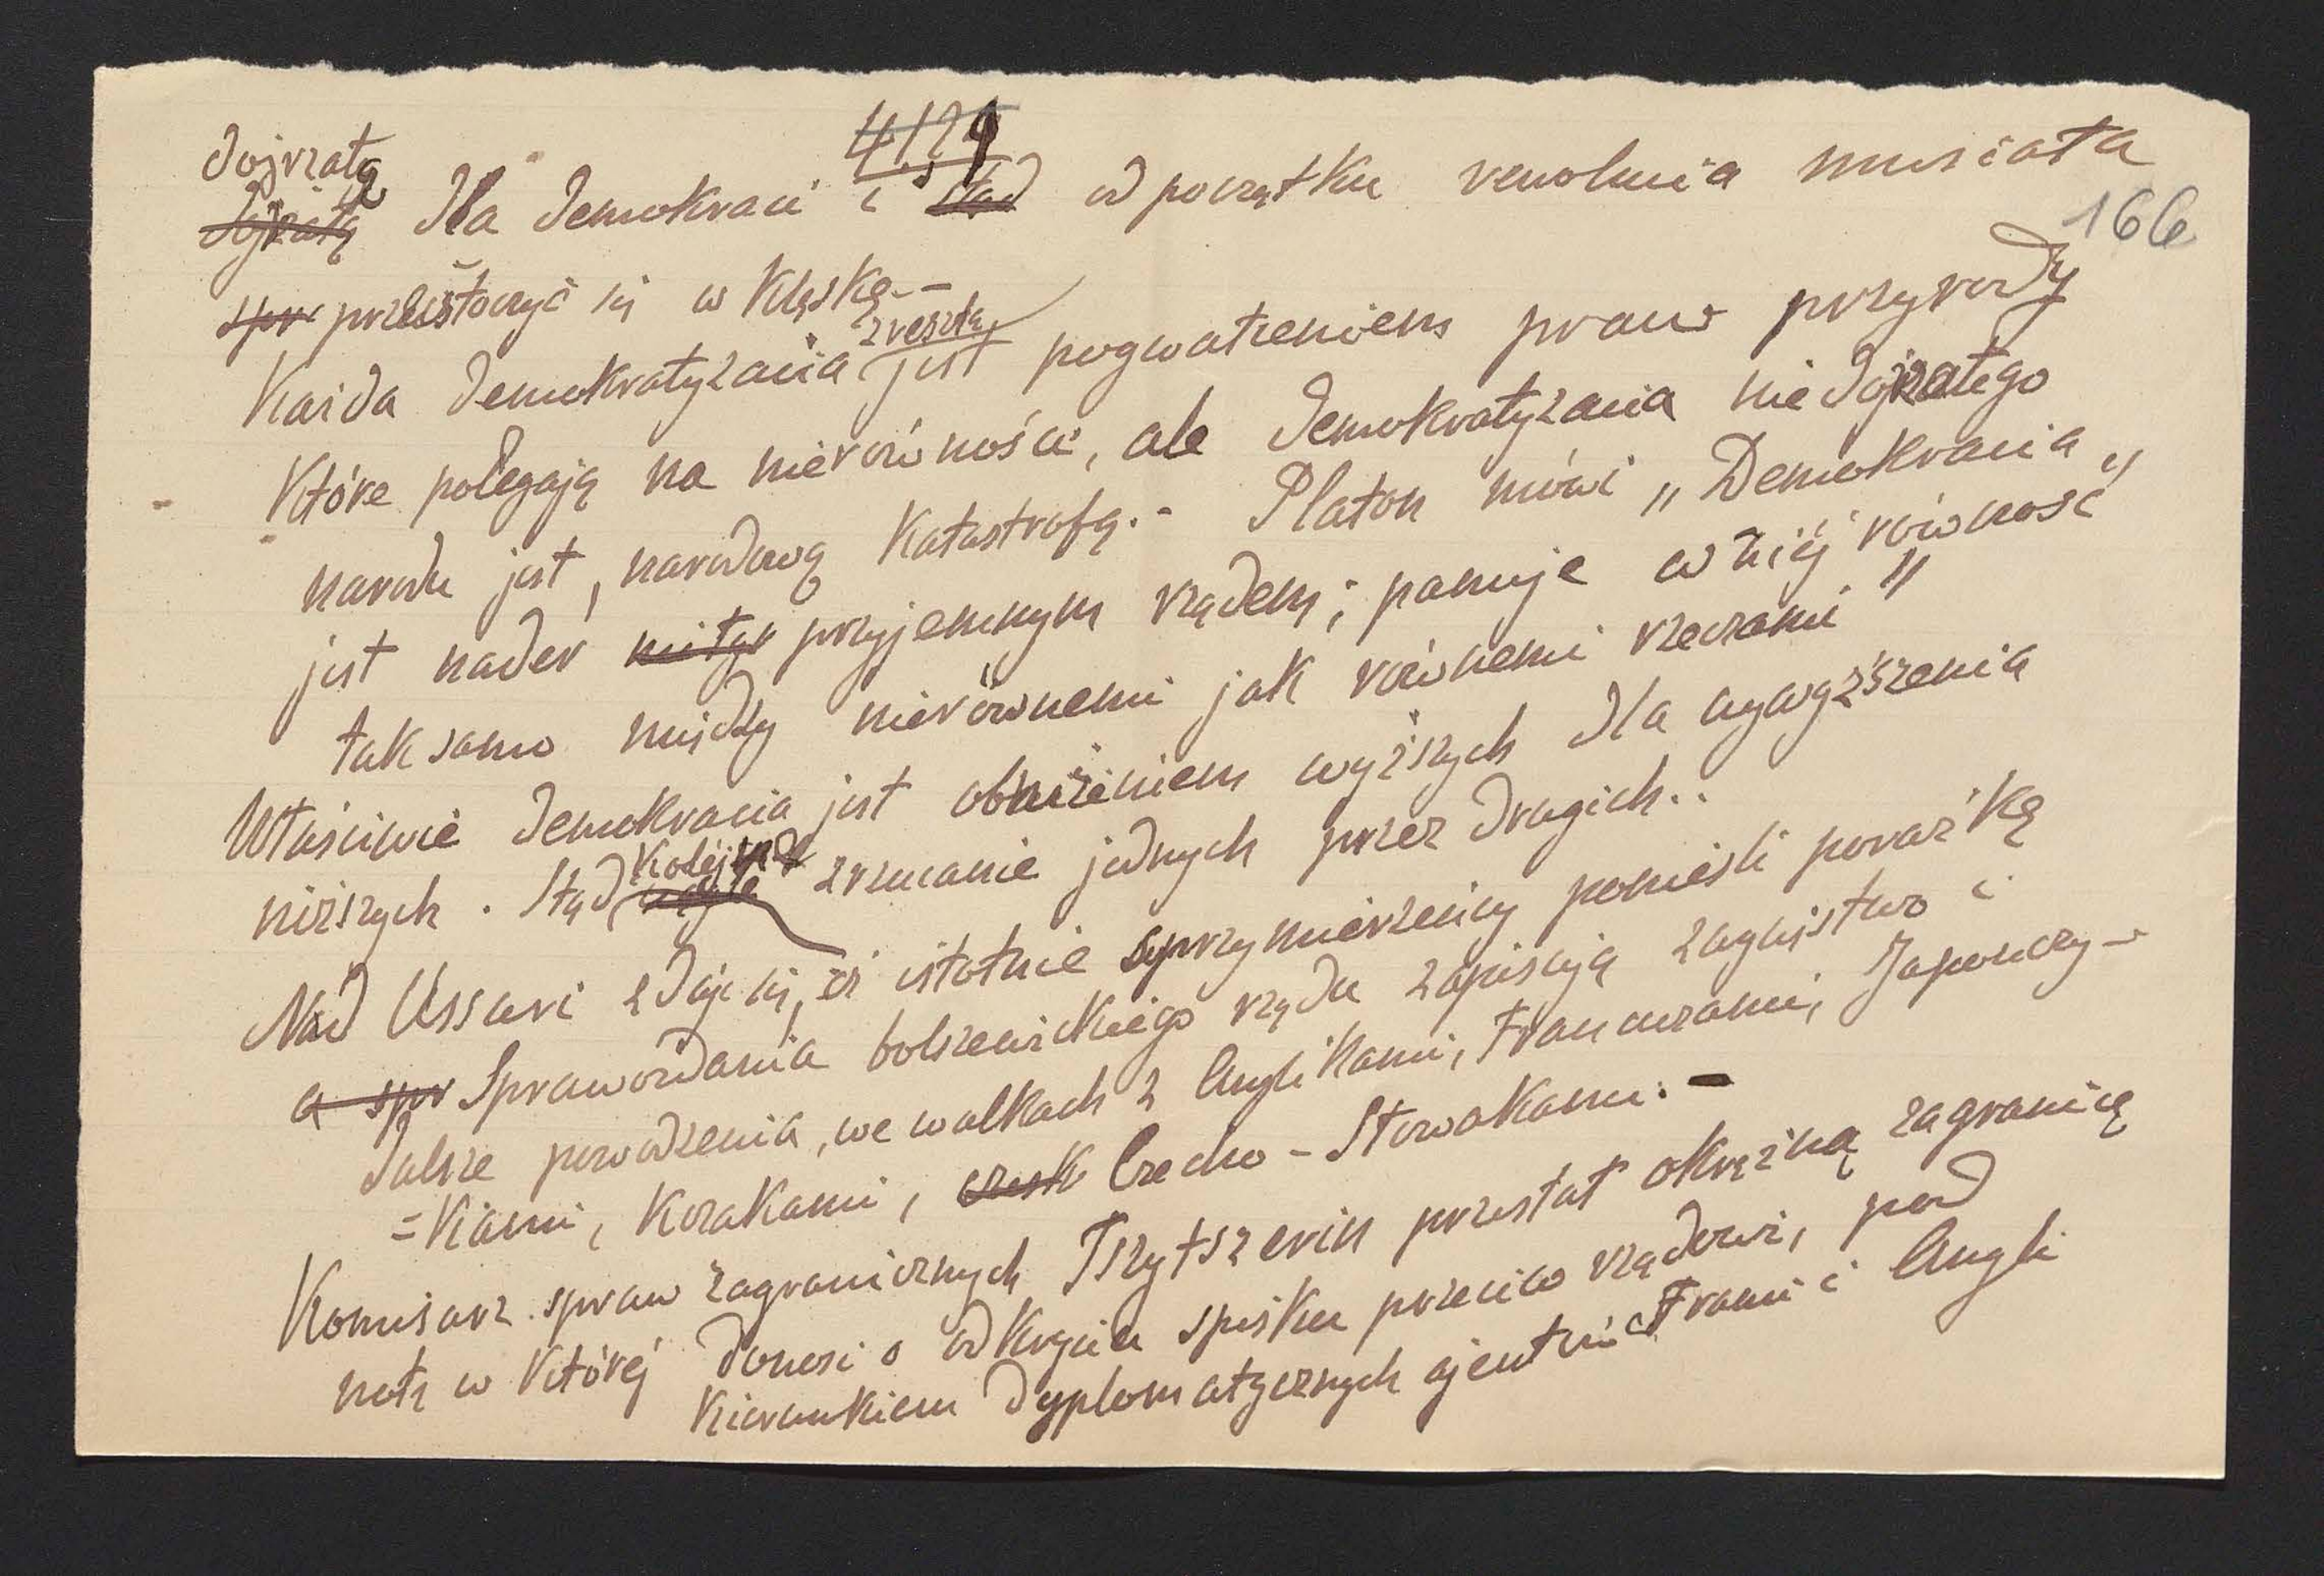 4/24
166
dojrzałą
dojrzałą dla demokracii i stąd od początku revolucia musiała
spr przeistoczyć się w klęskę.-
Każda demokratyzacia zresztą jest pogwałceniem praw przyrody
które polegają na nierówności, ale demokratyzacia niedojrzałego
narodu jest, narodową katastrofą.- Platon mówi „Demokracia
jest nader przyjemnym rządem; panuje w niéj równość
tak samo między nierównemi jak równemi rzeczami"
Właściwie demokracia jest obniżeniem wyższych dla wywyższenia
niższych. Stąd kolejne zrzucanie jednych przez drugich..
Nad Ussuri zdaje się, iż istotnie sprzymierzeńcy ponieśli porażkę
a spr Sprawozdania bolszewickiego rządu zapisują zwycięstwo i
dalsze powodzenia, we walkach z Anglikami, Francuzami, Japończy-
=kami, Kozakami, czesk Czecho-Słowakami.-
Komisarz spraw zagranicznych Tszytszerin przesłał okrężną zagranicę
notę w któréj donosi o odkryciu spisku przeciw rządowi, pod
kierunkiem dyplomatycznych ajentów Francii i Anglii